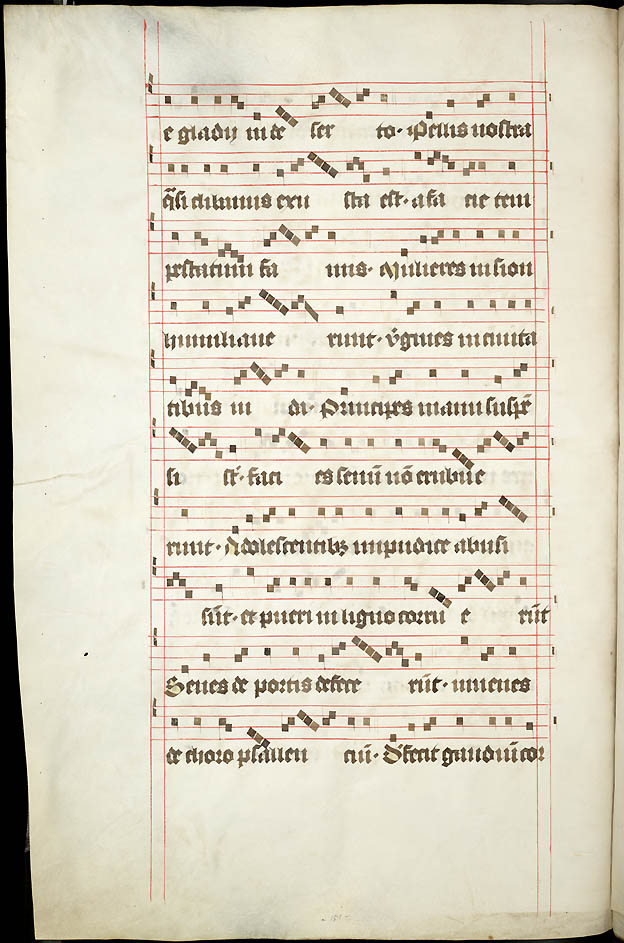 e gladij in de ser to. Pellis nostra
q̃si clibanus exu sta est. a fa cie tem
pestatum fa mis. Mulieres in sion
humiliaue runt. v̾gines in ciuita
tibus iu da. Principes manu suspẽ
si sũt. faci es senũ nõ erubue
runt. Adolescentibꝫ impudice abusi
sũt. et pueri in ligno corru e rũt
Senes de portis defece rũt. iuuenes
de choro psallen ciũ. Defecit gaudiũ cor